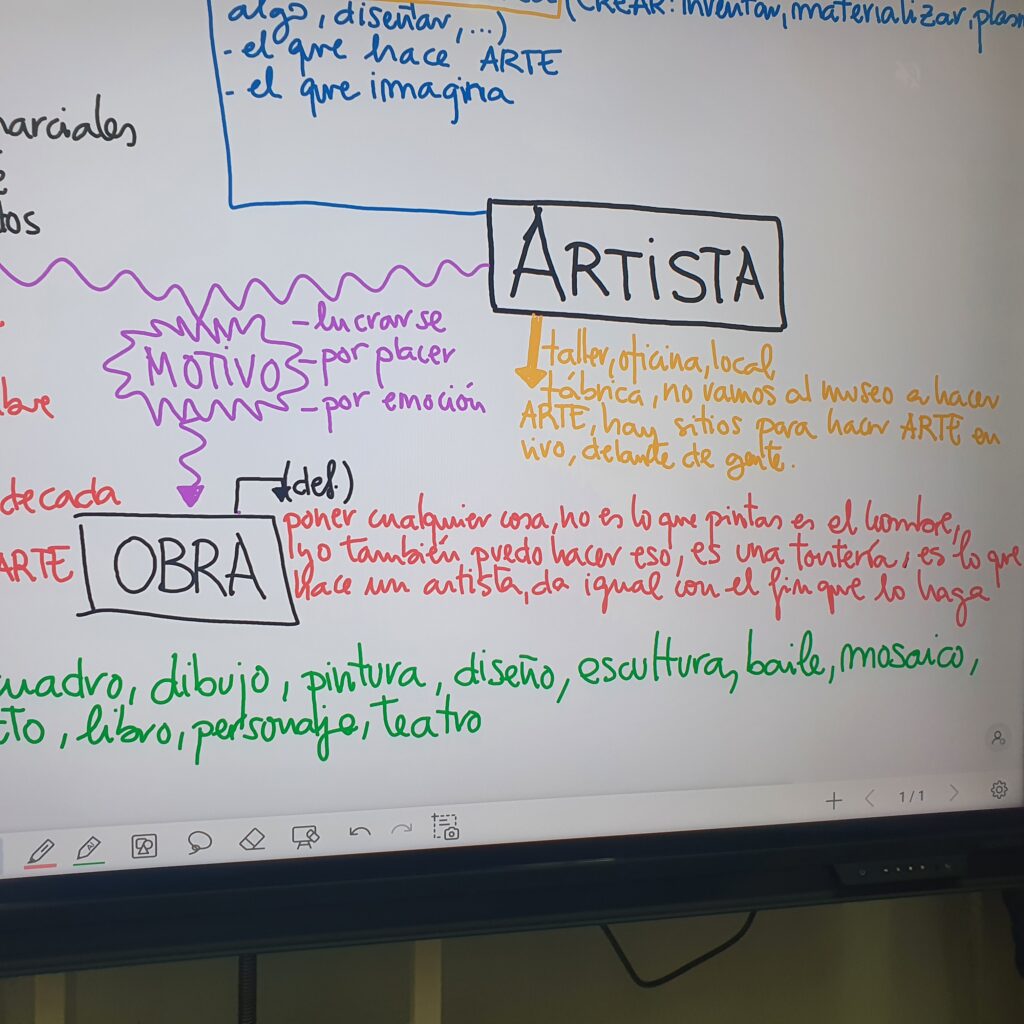 (CREAR: inventar, materializar,
algo, diseñar, ...)
- el que hace ARTE
- el que imagina
marciales
tos
ARTISTA
- lucrarse
MOTIVO - por placer
- por emoción
taller, oficina, local
fábrica, no vamos al museo a hacer
ARTE, hay sitios para hacer ARTE en
vivo, delante de gente.
decada
(def.)
ARTE
OBRA
poner cualquier cosa, no es lo que pintas es el hombre,
yo también puedo hacer eso, es una tontería, es lo que
hace un artista, da igual con el fin que lo haga
cuadro, dibujo, pintura, diseño, escultura, baile, mosaico,
cto, libro, personaje, teatro
1/1